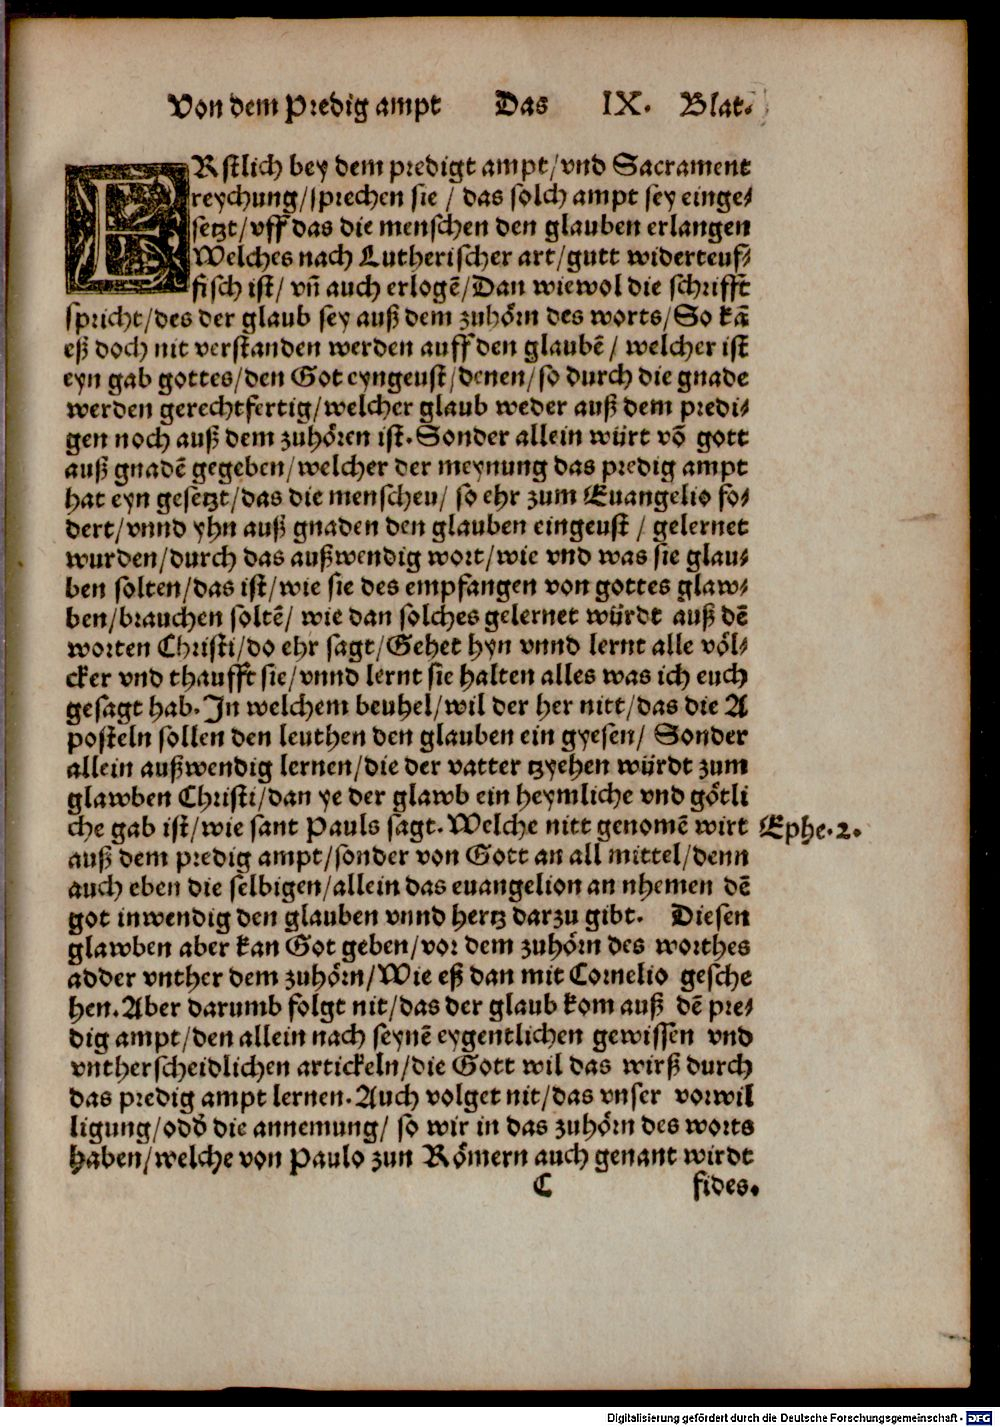 Von dem Predig ampt Das IX. Blat.
ERstlich bey dem predigt ampt/vnd Sacrament
reychung/sprechen sie / das solch ampt sey einge⸗
setzt/vff das die menschen den glauben erlangen
Welches nach Lutherischer art/gutt widerteuf⸗
fisch ist/ vñ auch erlogē/Dan wiewol die schrifft
spricht/des der glaub sey auß dem zuhörn des worts/So kā
eß doch nit verstanden werden auff den glaubē / welcher ist
eyn gab gottes/den Got eyngeust/denen/so durch die gnade
werden gerechtfertig/welcher glaub weder auß dem predi⸗
gen noch auß dem zuhören ist. Sonder allein würt vō gott
auß gnadē gegeben/welcher der meynung das predig ampt
hat eyn gesetzt/das die menschen/ so ehr zum Euangelio fo⸗
dert/vnnd yhn auß gnaden den glauben eingeust / gelernet
wurden/durch das außwendig wort/wie vnd was sie glau⸗
ben solten/das ist/wie sie des empfangen von gottes glaw⸗
ben/brauchen soltē/ wie dan solches gelernet würdt auß dē
worten Christi/do ehr sagt/Gehet hyn vnnd lernt alle völ⸗
cker vnd thaufft sie/vnnd lernt sie halten alles was ich euch
gesagt hab. In welchem beuhel/wil der her nitt/das die A
posteln sollen den leuthen den glauben ein gyesen/ Sonder
allein außwendig lernen/die der vatter tzyehen würdt zum
glawben Christi/dan ye der glawb ein heymliche vnd götli
che gab ist/wie sant Pauls sagt. Welche nitt genomē wirt
Ephe.2.
auß dem predig ampt/sonder von Gott an all mittel/denn
auch eben die selbigen/allein das euangelion an nhemen dē
got inwendig den glauben vnnd hertz darzu gibt. Diesen
glawben aber kan Got geben/vor dem zuhörn des worthes
adder vnther dem zuhörn/Wie eß dan mit Cornelio gesche
hen. Aber darumb folgt nit/das der glaub kom auß dē pre⸗
dig ampt/den allein nach seynē eygentlichen gewissen vnd
vntherscheidlichen artickeln/die Gott wil das wirß durch
das predig ampt lernen. Auch volget nit/das vnser vorwil
ligung/odd̕ die annemung/ so wir in das zuhörn des worts
haben/welche von Paulo zun Römern auch genant wirdt
C fides.
Digitalisierung gefördert durch die Deutsche Forschungsgemeinschaft - DFG